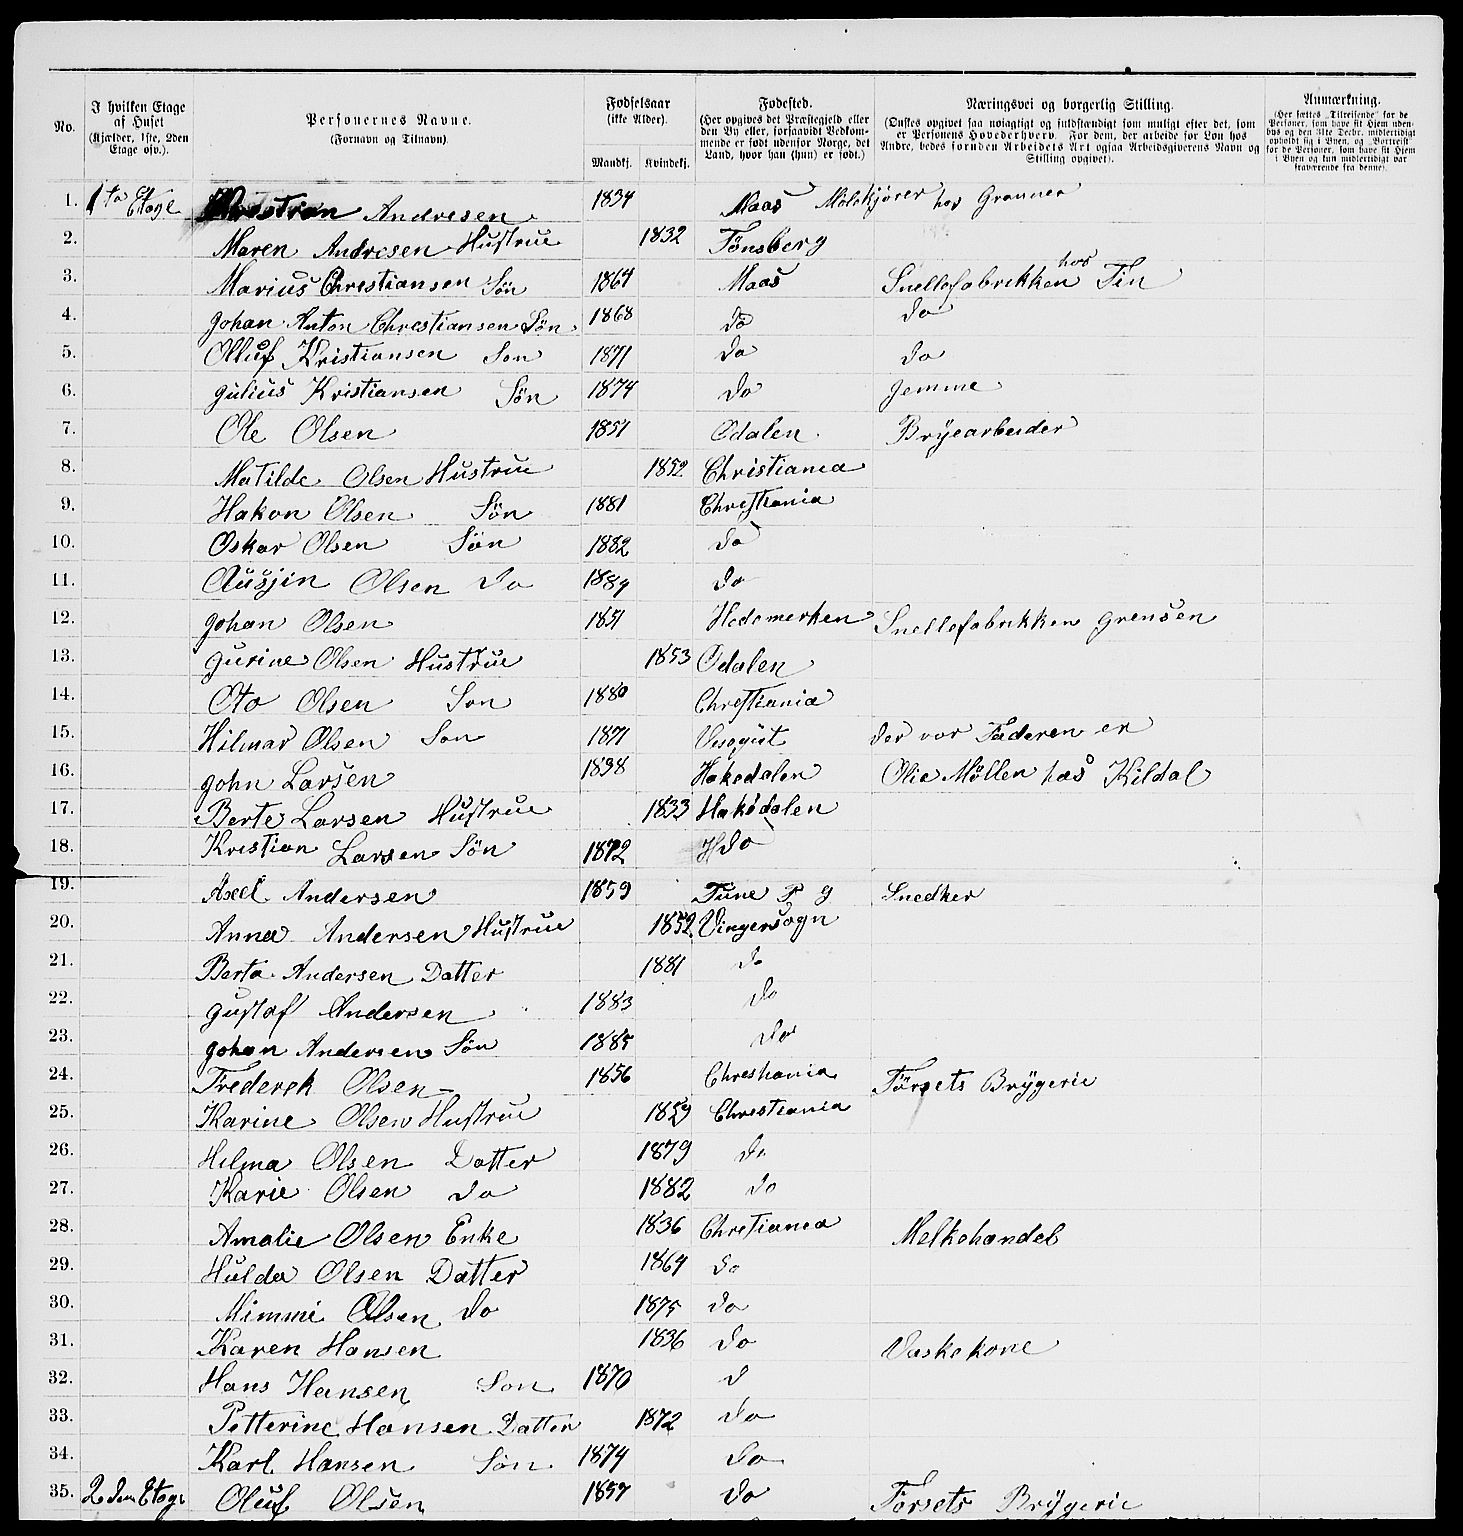 No.
I hvilken Etage af Huset (Kjælder, 1ste, 2den Etage osv.).
Personernes Navne. (Fornavn og Tilnavn).
Fødselsaar (ikke Alder).
Mandkj. Kvindekj.
Fødested. (Her opgives det Præstegjeld eller den By eller, forsaavidt Vedkommende er født udenfor Norge, det Land, hvor han (hun) er født.)
Næringsvei og borgerlig Stilling. (Ønskes opgivet saa nøiagtigt og fuldstændigt som muligt efter det, som er Personens Hovederhverv. For dem, der arbeide for Løn hos Andre, bedes foruden Arbeidets Art ogsaa Arbeidsgiverens Navn og Stilling opgivet).
Anmærkning. (Her sættes „Tilreisende" for de Personer, som have sit Hjem udenbys og den 31te Decbr. midlertidigt opholdt sig i Byen, og „Bortreist" for de Personer, som have sit Hjem i Byen og kun midlertidigt var fraværende fra denne).
1. 1ta Etage Andresen 1834 Maas hos
2. Maren Andresen Hustrue 1832 Tønsberg
3. Marius Christiansen Søn 1864 Maas Snellefabrikken hos Fin
4. Johan Anton Christiansen Søn 1868 do do
5. Olluf Kristiansen Søn 1871 do do
6. Julius Kristiansen Søn 1874 do Jemme
7. Ole Olsen 1851 Odalen Bryearbeider
8. Matilde Olsen Hustrue 1852 Christiania
9. Hakon Olsen Søn 1881 Christiania
10. Oskar Olsen Søn 1882 do
11. Olsen do 1884 do
12. Johan Olsen 1851 Hedemerken Snellefabrikken Grensen
13. Gurine Olsen Hustrue 1853 Odalen
14. Oto Olsen Søn 1880 Christiania
15. Hilmar Olsen Son 1871 der vor Faderen er
16. John Larsen 1838 Hakedalen Olie Møllen hos Kildal
17. Berte Larsen Hustrue 1833 Hakedalen
18. Kristian Larsen Søn 1872 H do
19. Axel Andersen 1859 Tune P g Snedker
20. Anna Andersen Hustrue 1852 Vingersogn
21. Berta Andersen Datter 1881 do
22. Gustaf Andersen 1883 do
23. Johan Andersen Søn 1885 do
24. Frederek Olsen 1856 Christiania Forsets Brygerie
25. Karine Olsen Hustrue 1859 Christiania
26. Helma Olsen Datter 1879 do
27. Karie Olsen do 1882 do
28. Amalie Olsen Enke 1836 Christiania Melkehandel
29. Hulda Olsen Datter 1864 do
30. Mimmi Olsen do 1875 do
31. Karen Hansen 1836 do Vaskekone
32. Hans Hansen Son 1870 d
33. Petterine Hansen Datter 1872 do
34. Karl Hansen Søn 1874 do
35. 2den Etage Oluf Olsen 1857 do Forsets Brygerie